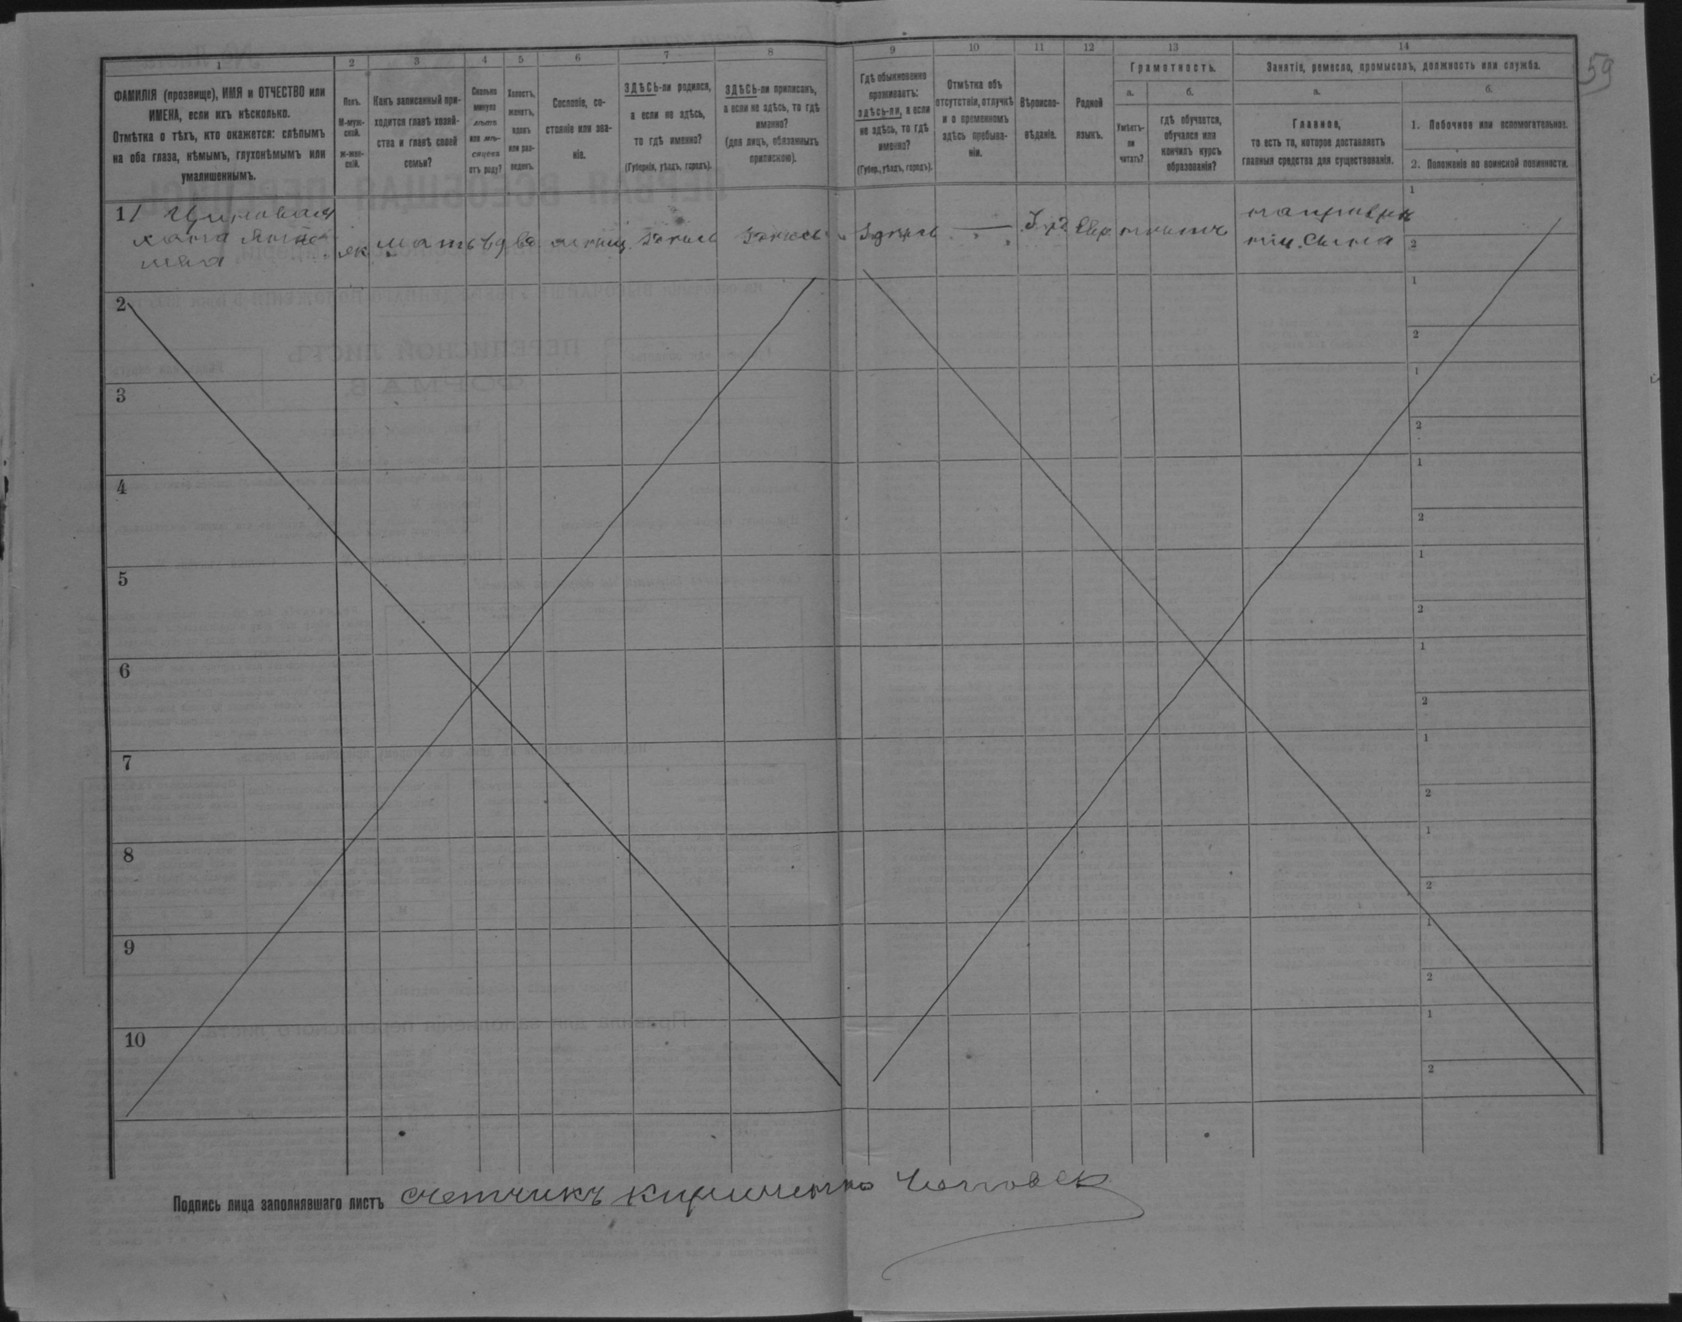 59
1
2
3
4
5
6
7
8
9
10
11
12
13
14
ФАМИЛІЯ (прозвище), ИМЯ и ОТЧЕСТВО или
ИМЕНА, если ихъ нѣсколько.
Отмѣтка о тѣхъ, кто окажется: слѣпымъ
на оба глаза, нѣмымъ, глухонѣмымъ или
умалишеннымъ.
Полъ.
М-муж-
ской.
Ж-жен-
скій.
Какъ записанный при-
ходится главѣ хозяй-
ства и главѣ своей
семьи?
Сколько
минуло
лѣтъ
или мѣ-
сяцевъ
отъ роду?
Холостъ,
женатъ,
вдовъ
или раз-
веденъ.
Сословіе, со-
стояніе или зва-
ніе.
ЗДѢСЬ-ли родился,
а если не здѣсь,
то гдѣ именно?
(Губернія, уѣздъ, городъ).
ЗДѢСЬ-ли приписанъ,
а если не здѣсь, то гдѣ
именно?
(для лицъ, обязанныхъ
припискою).
Гдѣ обыкновенно
проживаетъ:
здѣсь-ли, а если
не здѣсь, то гдѣ
именно?
(Губер., уѣздъ, городъ).
Отмѣтка объ
отсутствіи, отлучкѣ
и о временномъ
здѣсь пребыва-
ніи.
Вѣроиспо-
вѣданіе.
Родной
языкъ.
Грамотность.
а.
б.
Умѣетъ-
ли
читать?
гдѣ обучается,
обучался или
кончилъ курсъ
образованія?
Занятіе, ремесло, промыселъ, должность или служба.
а.
б.
Главное,
то есть то, которое доставляетъ
главныя средства для существованія.
1. Побочное или вспомогательное.
2. Положеніе по воинской повинности.
1
мать вд здѣсь здѣсь здѣсь Іуд Евр
при сына
1
2
2
1
2
3
1
2
4
1
2
5
1
2
6
1
2
7
1
2
8
1
2
9
1
2
10
1
2
Подпись лица заполнявшаго листъ счетчикъ